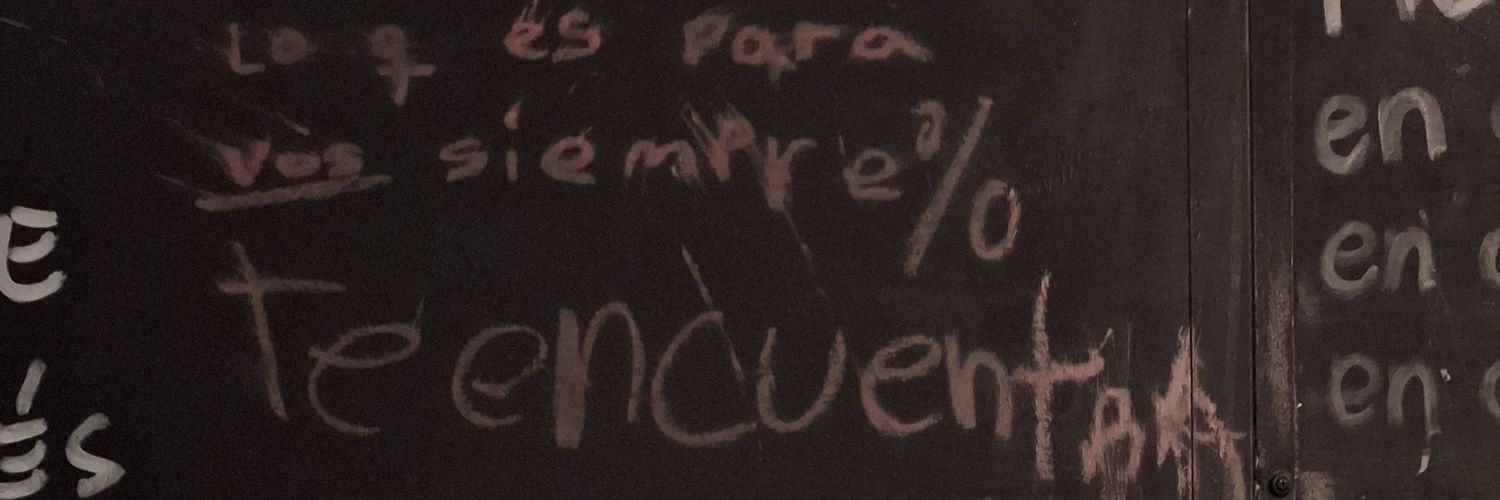 Lo q es para
vos siempre %
te encuentra
E
ÉS
en
en
en